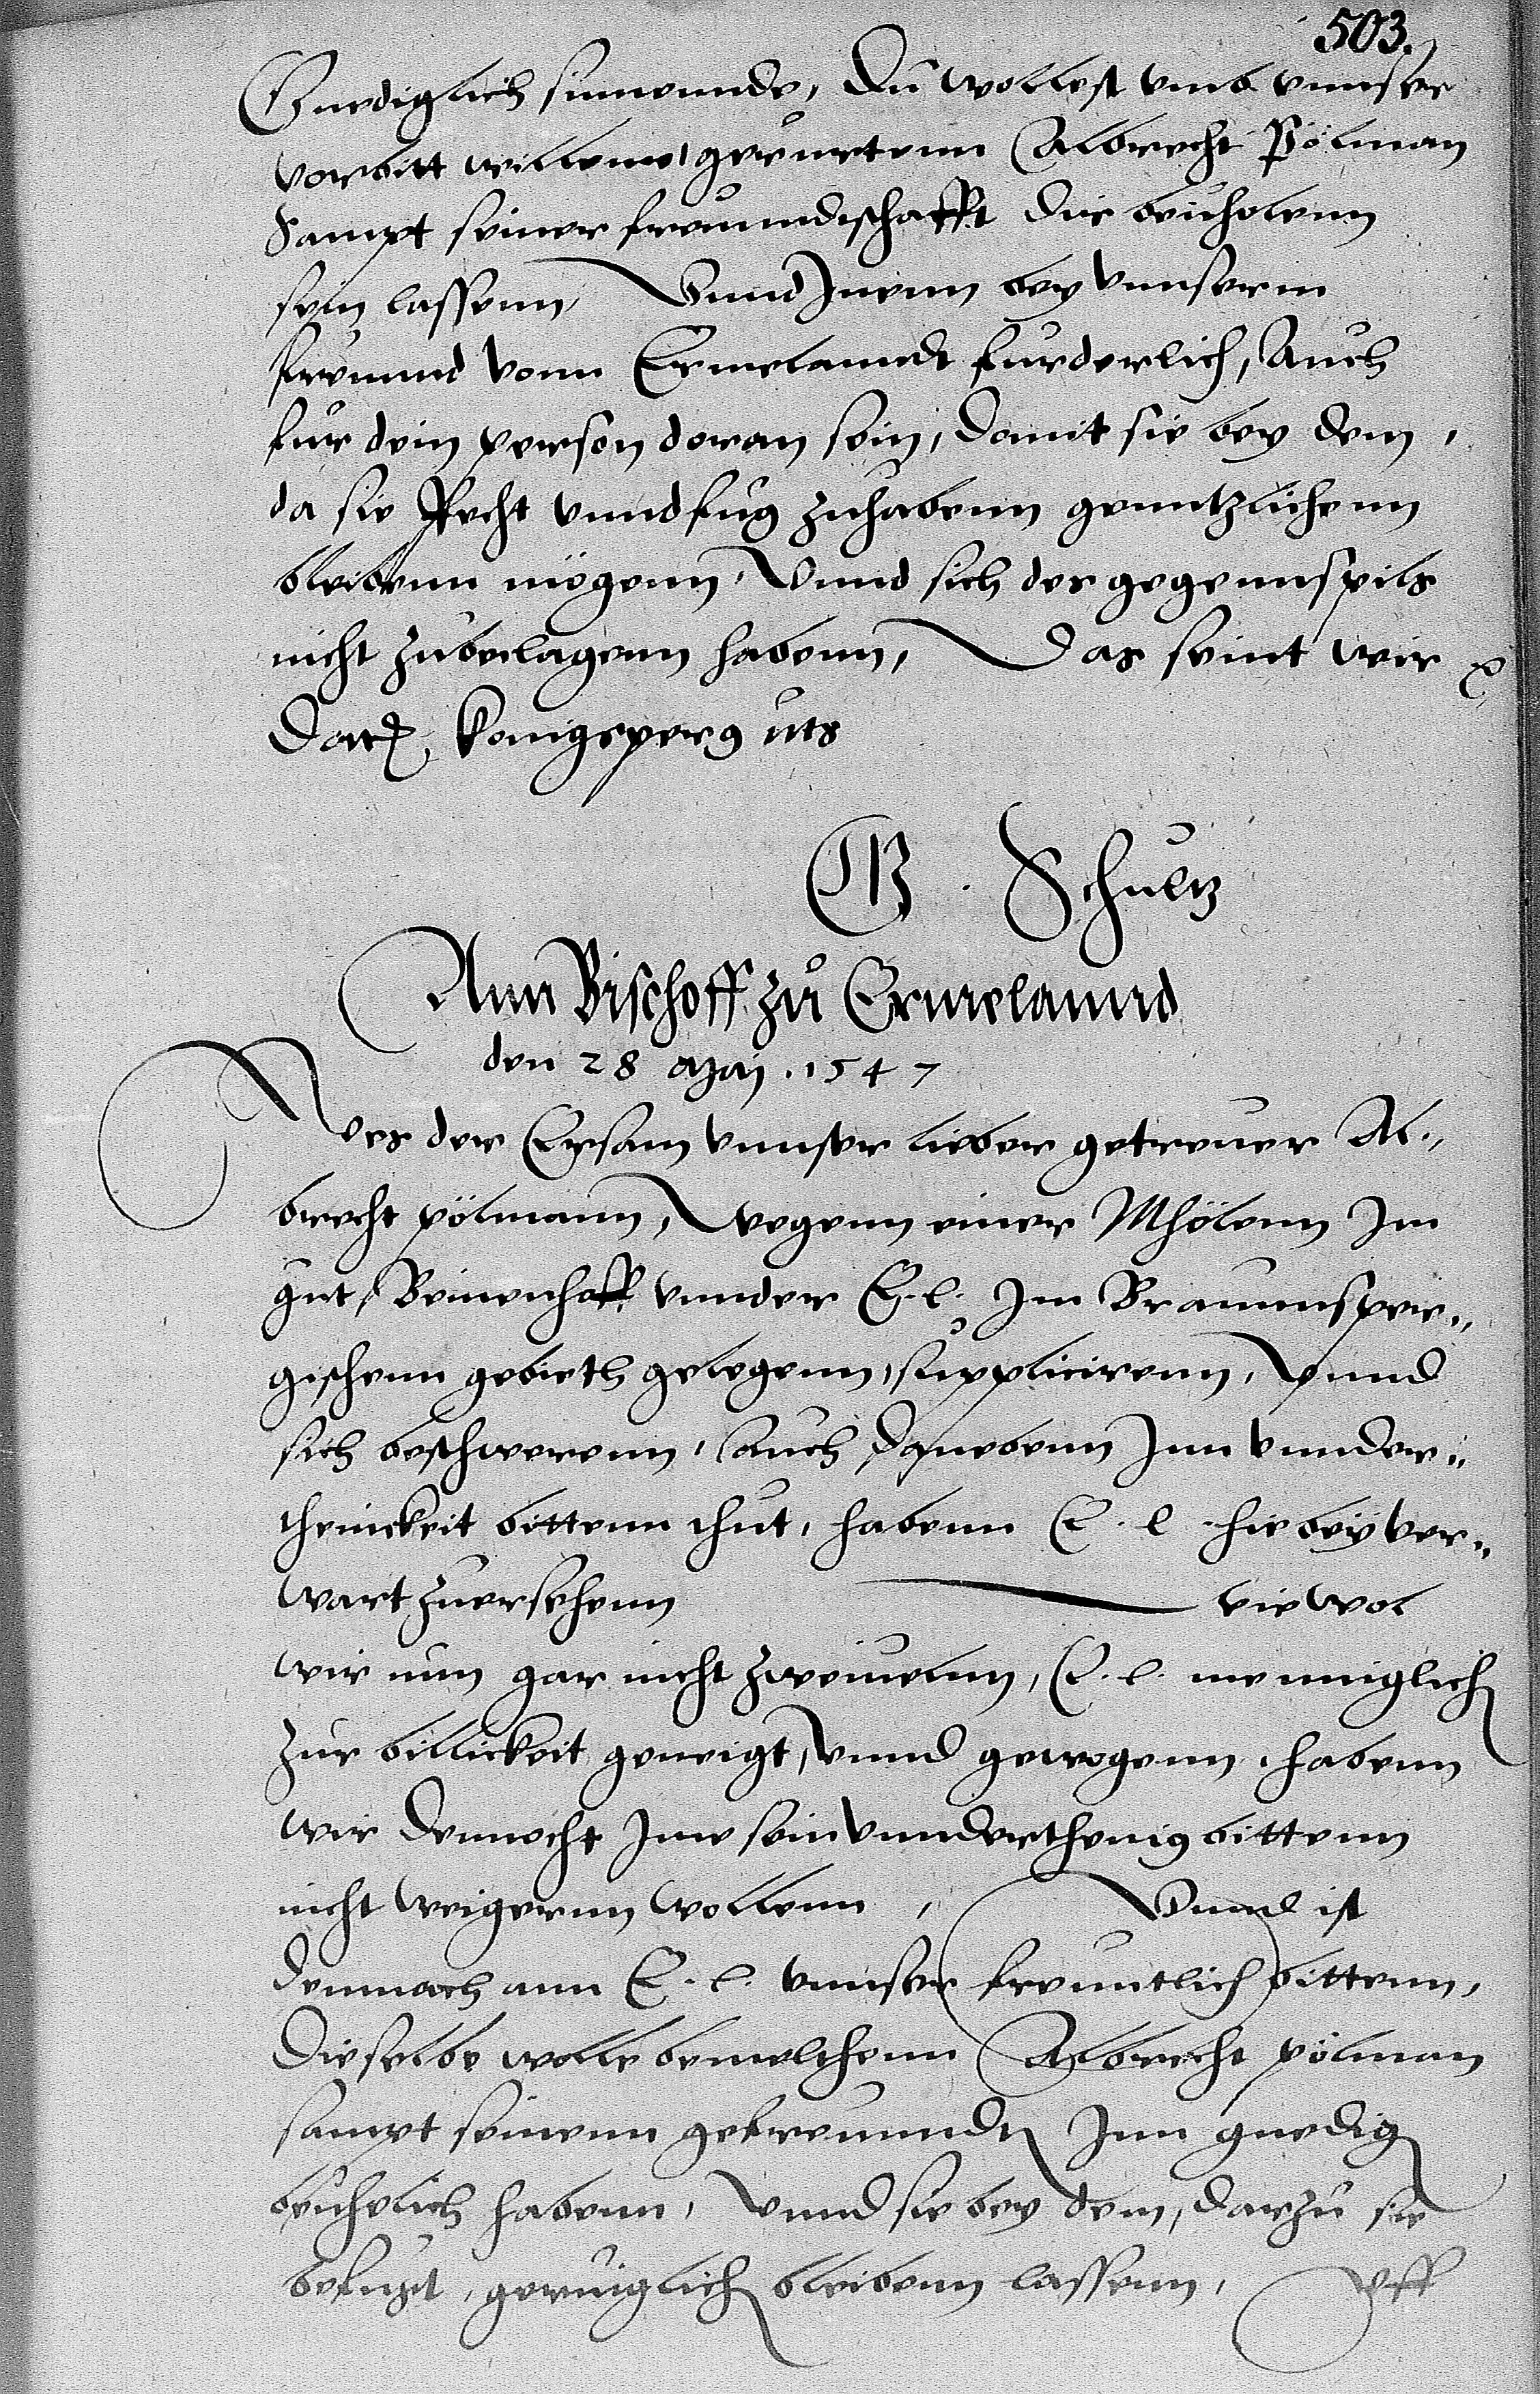 503.
Gnediglich sinnennde, Du wollest vmb vnnser
vorbitt willenn, gerurtenn Albrecht Pölman
Sampt seiner freunndtschafft dir beuholenn
sein lassenn, Vnnd Inenn bey vnnserm
freunnd vonn Ermelanndt furderlich, Auch
fur dein person doran sein, damit sie bey dem,
da sie Recht vnnd fug zuhabenn genntzlichenn
bleibenn mögenn, Vnnd sich des gegennspils
nicht zubeclagenn habenn, Das seint wir
Dat. Konigsperg uts
B. Schultz
Ann Bischoff zu Ermelannd
den 28 Maij. 1547
Wes der Ersam vnnser lieber getreuer Al-
brecht pölmann, Wegenn einer Mhölenn Im
gut, Beinenhoff vnnder E. l. Im Braunnsper-
gischenn gebieth gelegenn, supplicirenn, Vnnd
sich beschwerenn, Auch danebenn Inn vnnder-
thenickeit bittenn thut, habenn E. l. hie bey ver-
wart zuersehenn Wie wol
wir nun gar nicht zweiuelnn, E. l. menniglich
zur billickeit geneigt, Vnnd gewogenn, habenn
wir dennocht Ime sein vnnderthenig bittenn
nicht weigernn wollenn, Vnnd ist
demnach ann E. l. vnnser freuntlich bittenn,
Dieselbe wolle bemelthenn Albrecht pölman
sampt seinenn gefreunndt Inn gnedig
beuhelich habenn, Vnnd sie bey dem, darzu sie
befugt, geruiglich bleibenn lassenn, Vff